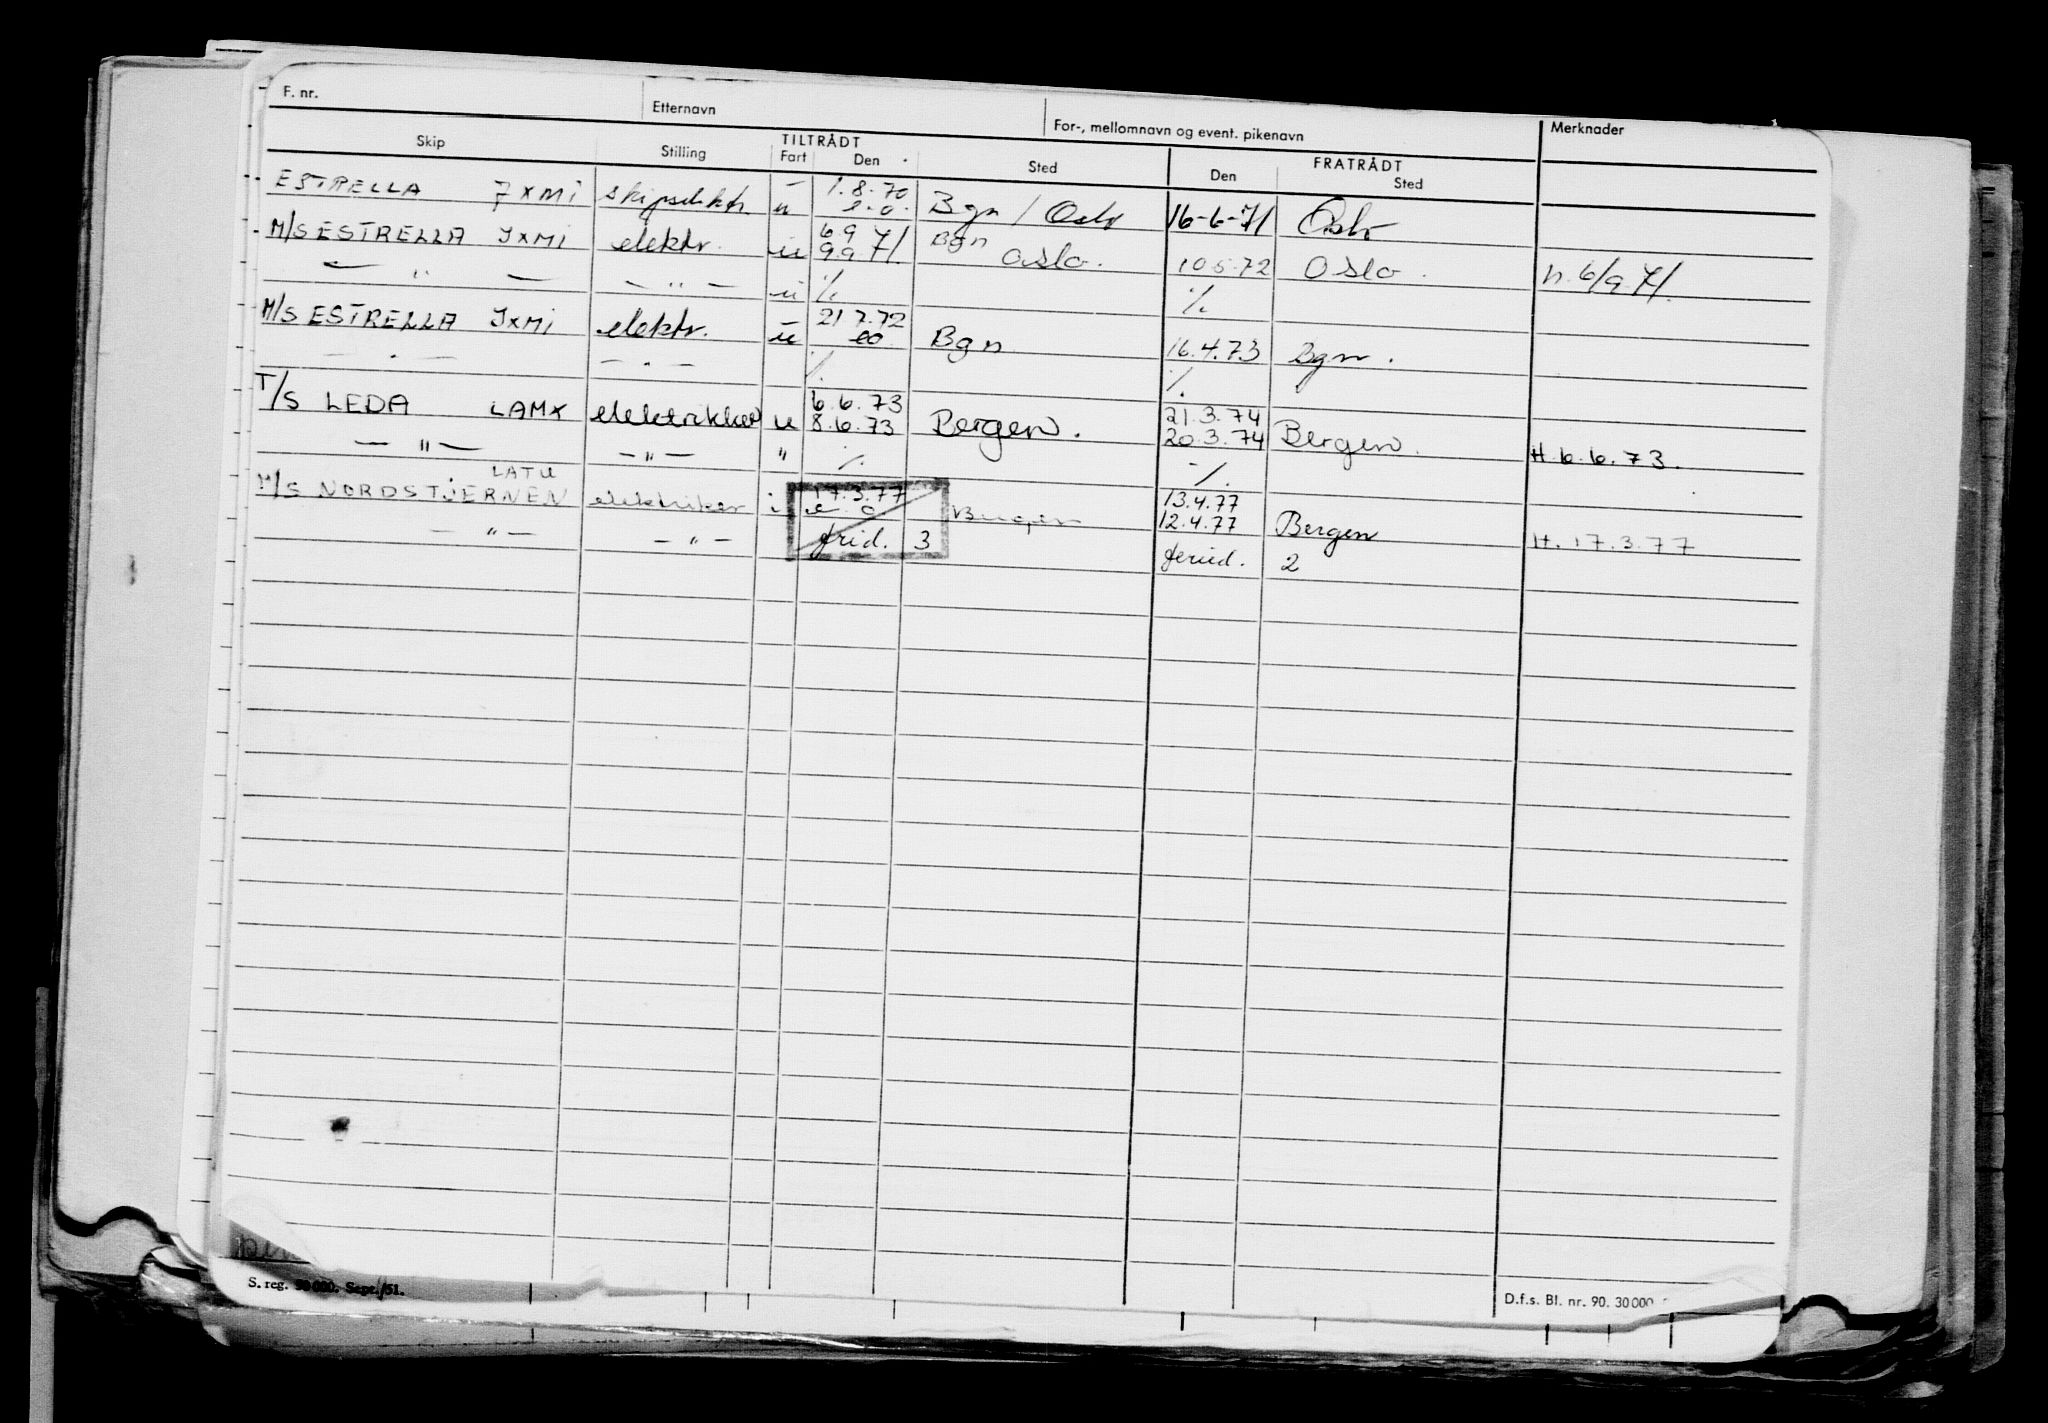 F. nr. Etternavn For-, mellomnavn og event. pikenavn Merknader
Skip Stilling TILTRÅDT Fart Den Sted FRATRÅDT Den Sted
ESTRELLA JXMi skipselektr. u 1.8.70 e.o. Bgn / Oslo 16-6-71 Oslo
M/S ESTRELLA JXMi elektr. u 6 9 9.9 71. Bgn Oslo. 10 5.72 Oslo. n. 6/9.71.
— " — — " — u ./. ./.
M/S ESTRELLA JXMi elektr. u 21 7.72 eo Bgn 16.4.73 Bgn.
— " — — " — ./. ./.
T/S LEDA LAMX elektrikker u 6.6.73 8.6.73 Bergen. 21.3.74 20.3.74 Bergen. H. 6.6.73.
— " — — " — " ./. ./.
M/S NORDSTJERNEN LATU elektriker i 17.3.77 e.o. Bergen 13.4.77 12.4.77 Bergen H. 17.3.77
— " — — " — frid. 3 feried. 2
S. reg. 50 000. Sept. 51.
D.f.s. Bl. nr. 90. 30 000